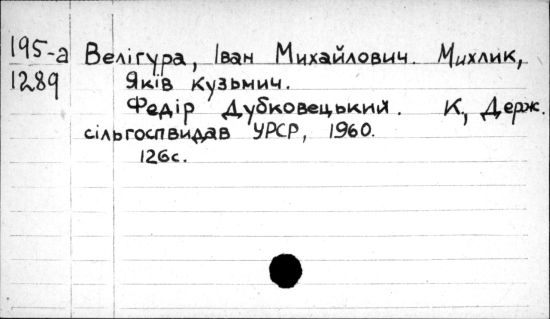 195-а
1289
Велігура, Іван Михайлович. Михлик,
Яків Кузьмич.
Федір Дубковецький. К, Держ.
сільгоспвидав УРСР, 1960.
126с.